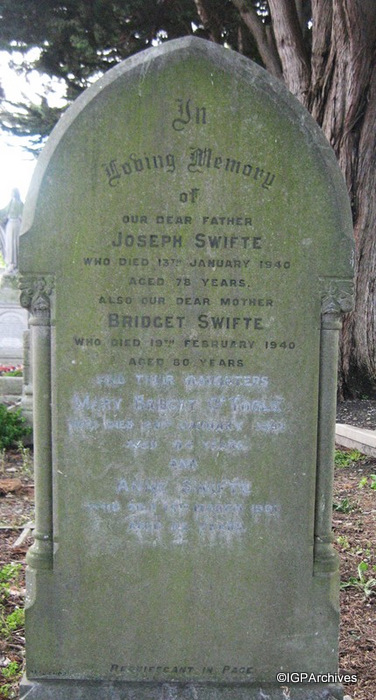 In
Loving Memory
of
OUR DEAR FATHER
JOSEPH SWIFTE
WHO DIED 13TH JANUARY 1940
AGED 78 YEARS.
ALSO OUR DEAR MOTHER
BRIDGET SWIFTE
WHO DIED 19TH FEBRUARY 1940
AGED 80 YEARS
AND THEIR DAUGHTERS
MARY
DIED JANUARY
AGED YEARS
AND
SWIFTE
DIED
AGED YEARS
REQUIESCANT IN PACE
©IGPArchives